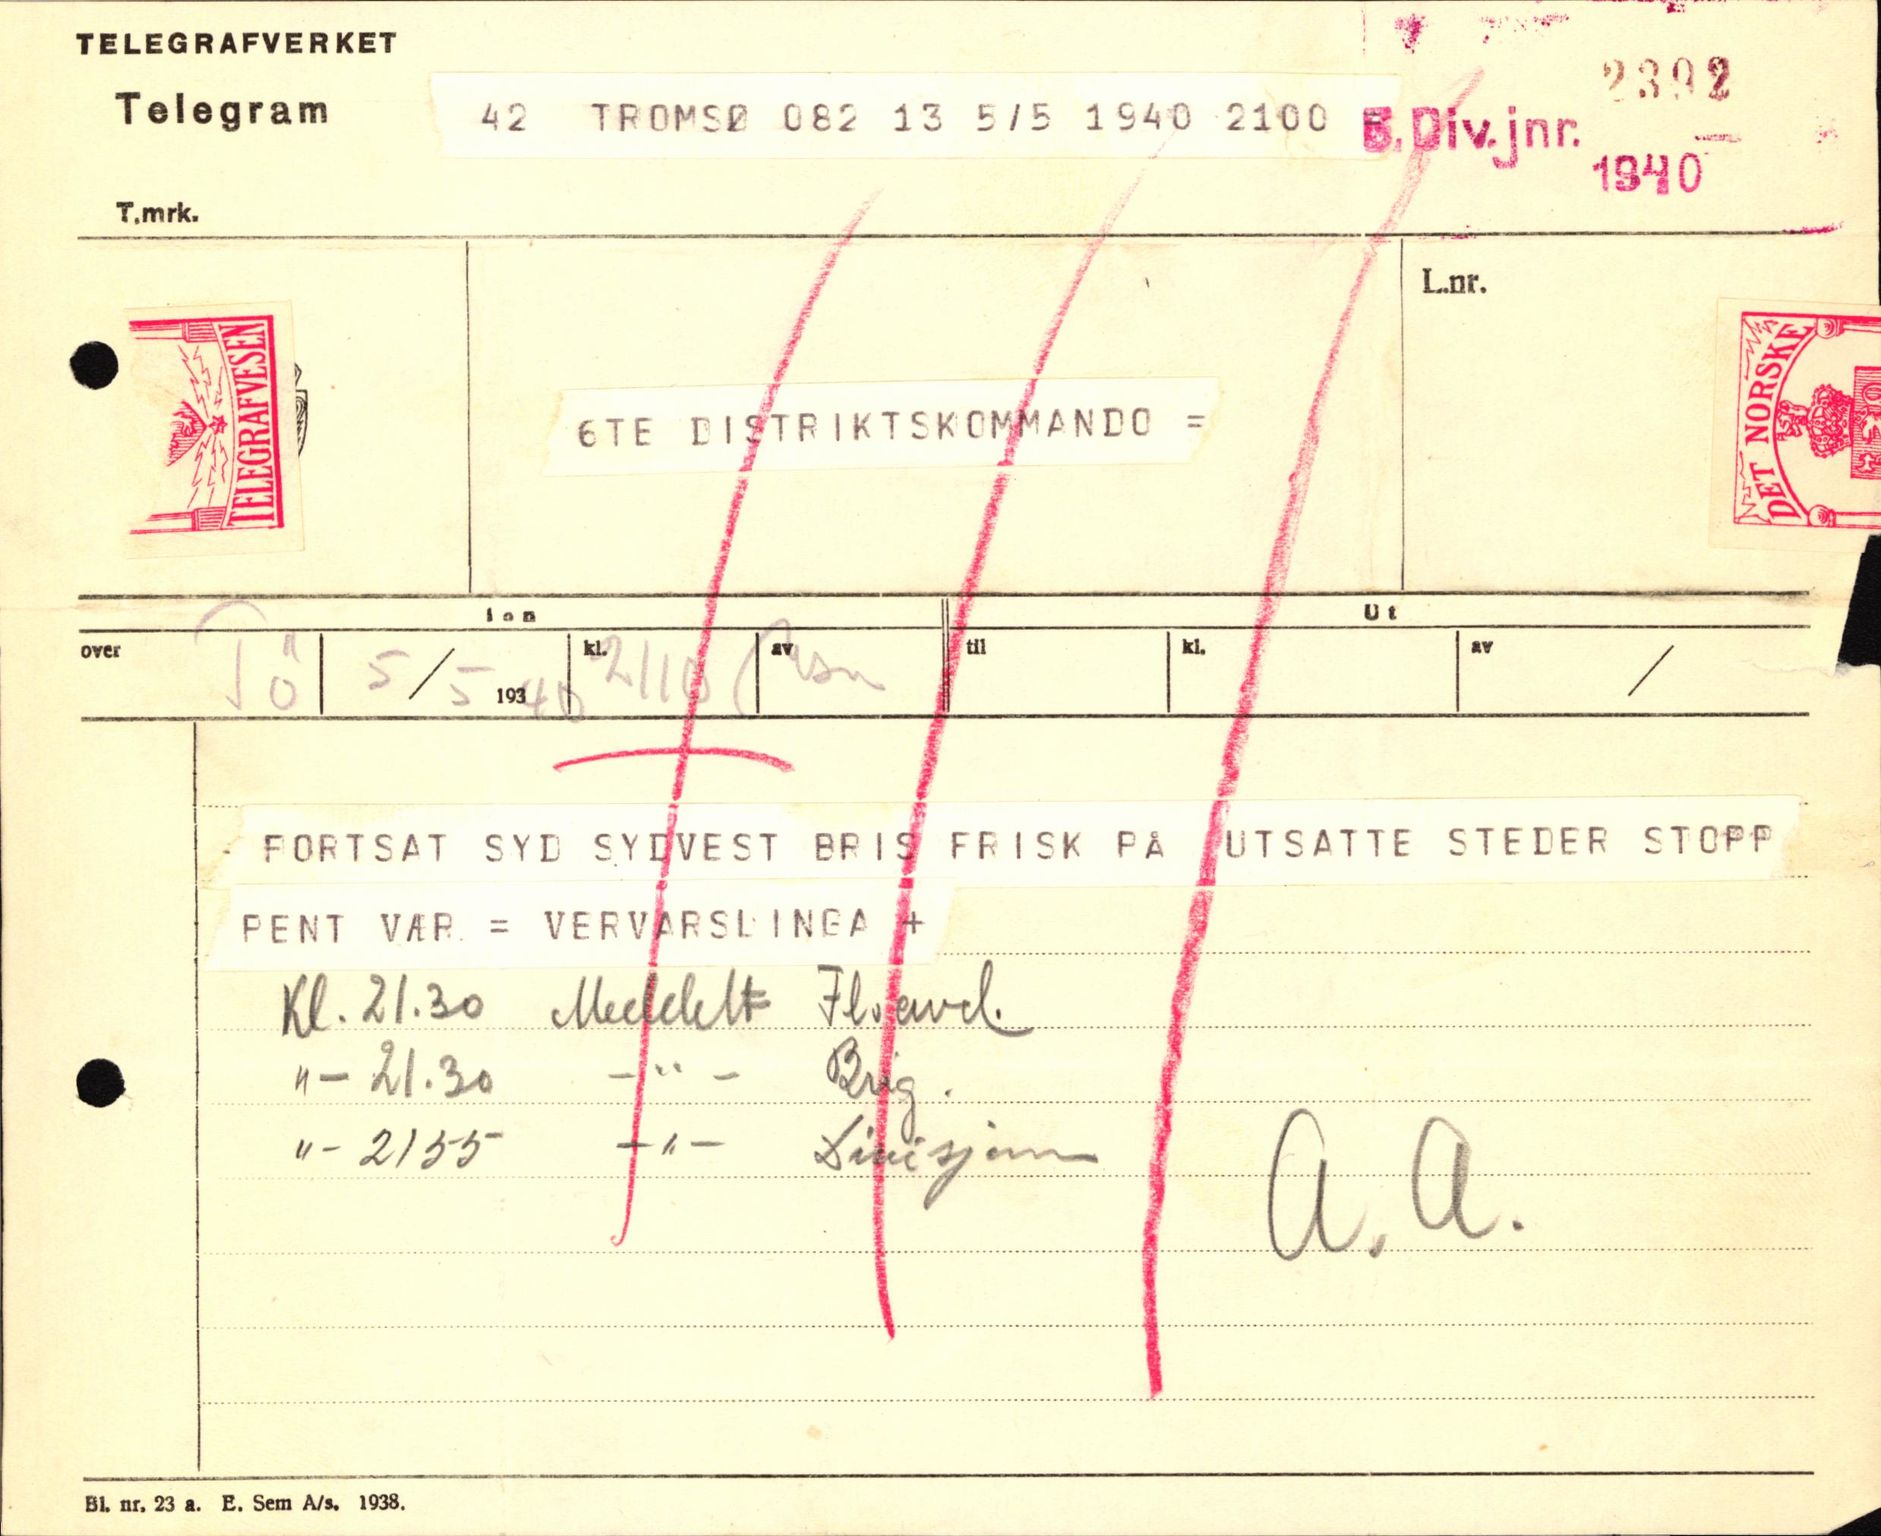 TELEGRAFVERKET
Telegram
42 TROMSØ 082 13 5/5 1940 2100 =
2392
6.Div.jnr.
1940
T.mrk.
L.nr.
TELEGRAFVESEN
DET NORSKE
6TE DISTRIKTSKOMMANDO =
Inn
Ut
over Tö 5/5 1940 kl. 2110 av til kl. av /
- FORTSAT SYD SYDVEST BRIS FRISK PÅ UTSATTE STEDER STOPP
PENT VÆR = VERVARSLINGA +
Kl. 21.30 Meddelt Flyavd.
"- 21.30 -"- Brig.
"- 2155 -"- Divisjonen
A. A.
Bl. nr. 23 a. E. Sem A/s. 1938.